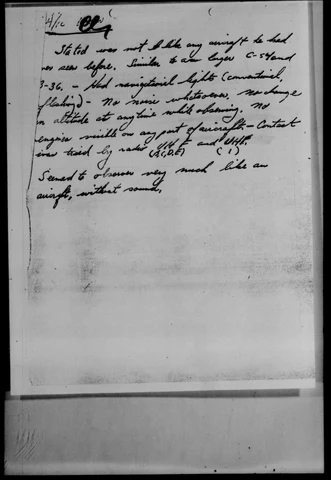 Stated was not like any aircraft he had
ever seen before. Similar to a larger C-54 and
B-36. - Had navigational lights (conventional,
flashing) - No noise whatsoever, no change
in altitude at anytime while observing. No
engines visible on any part of aircraft. - Contact
was tried by radio VHF and UHF.
(B,C,D,E) (1)
Seemed to observer very much like an
aircraft, without sound.